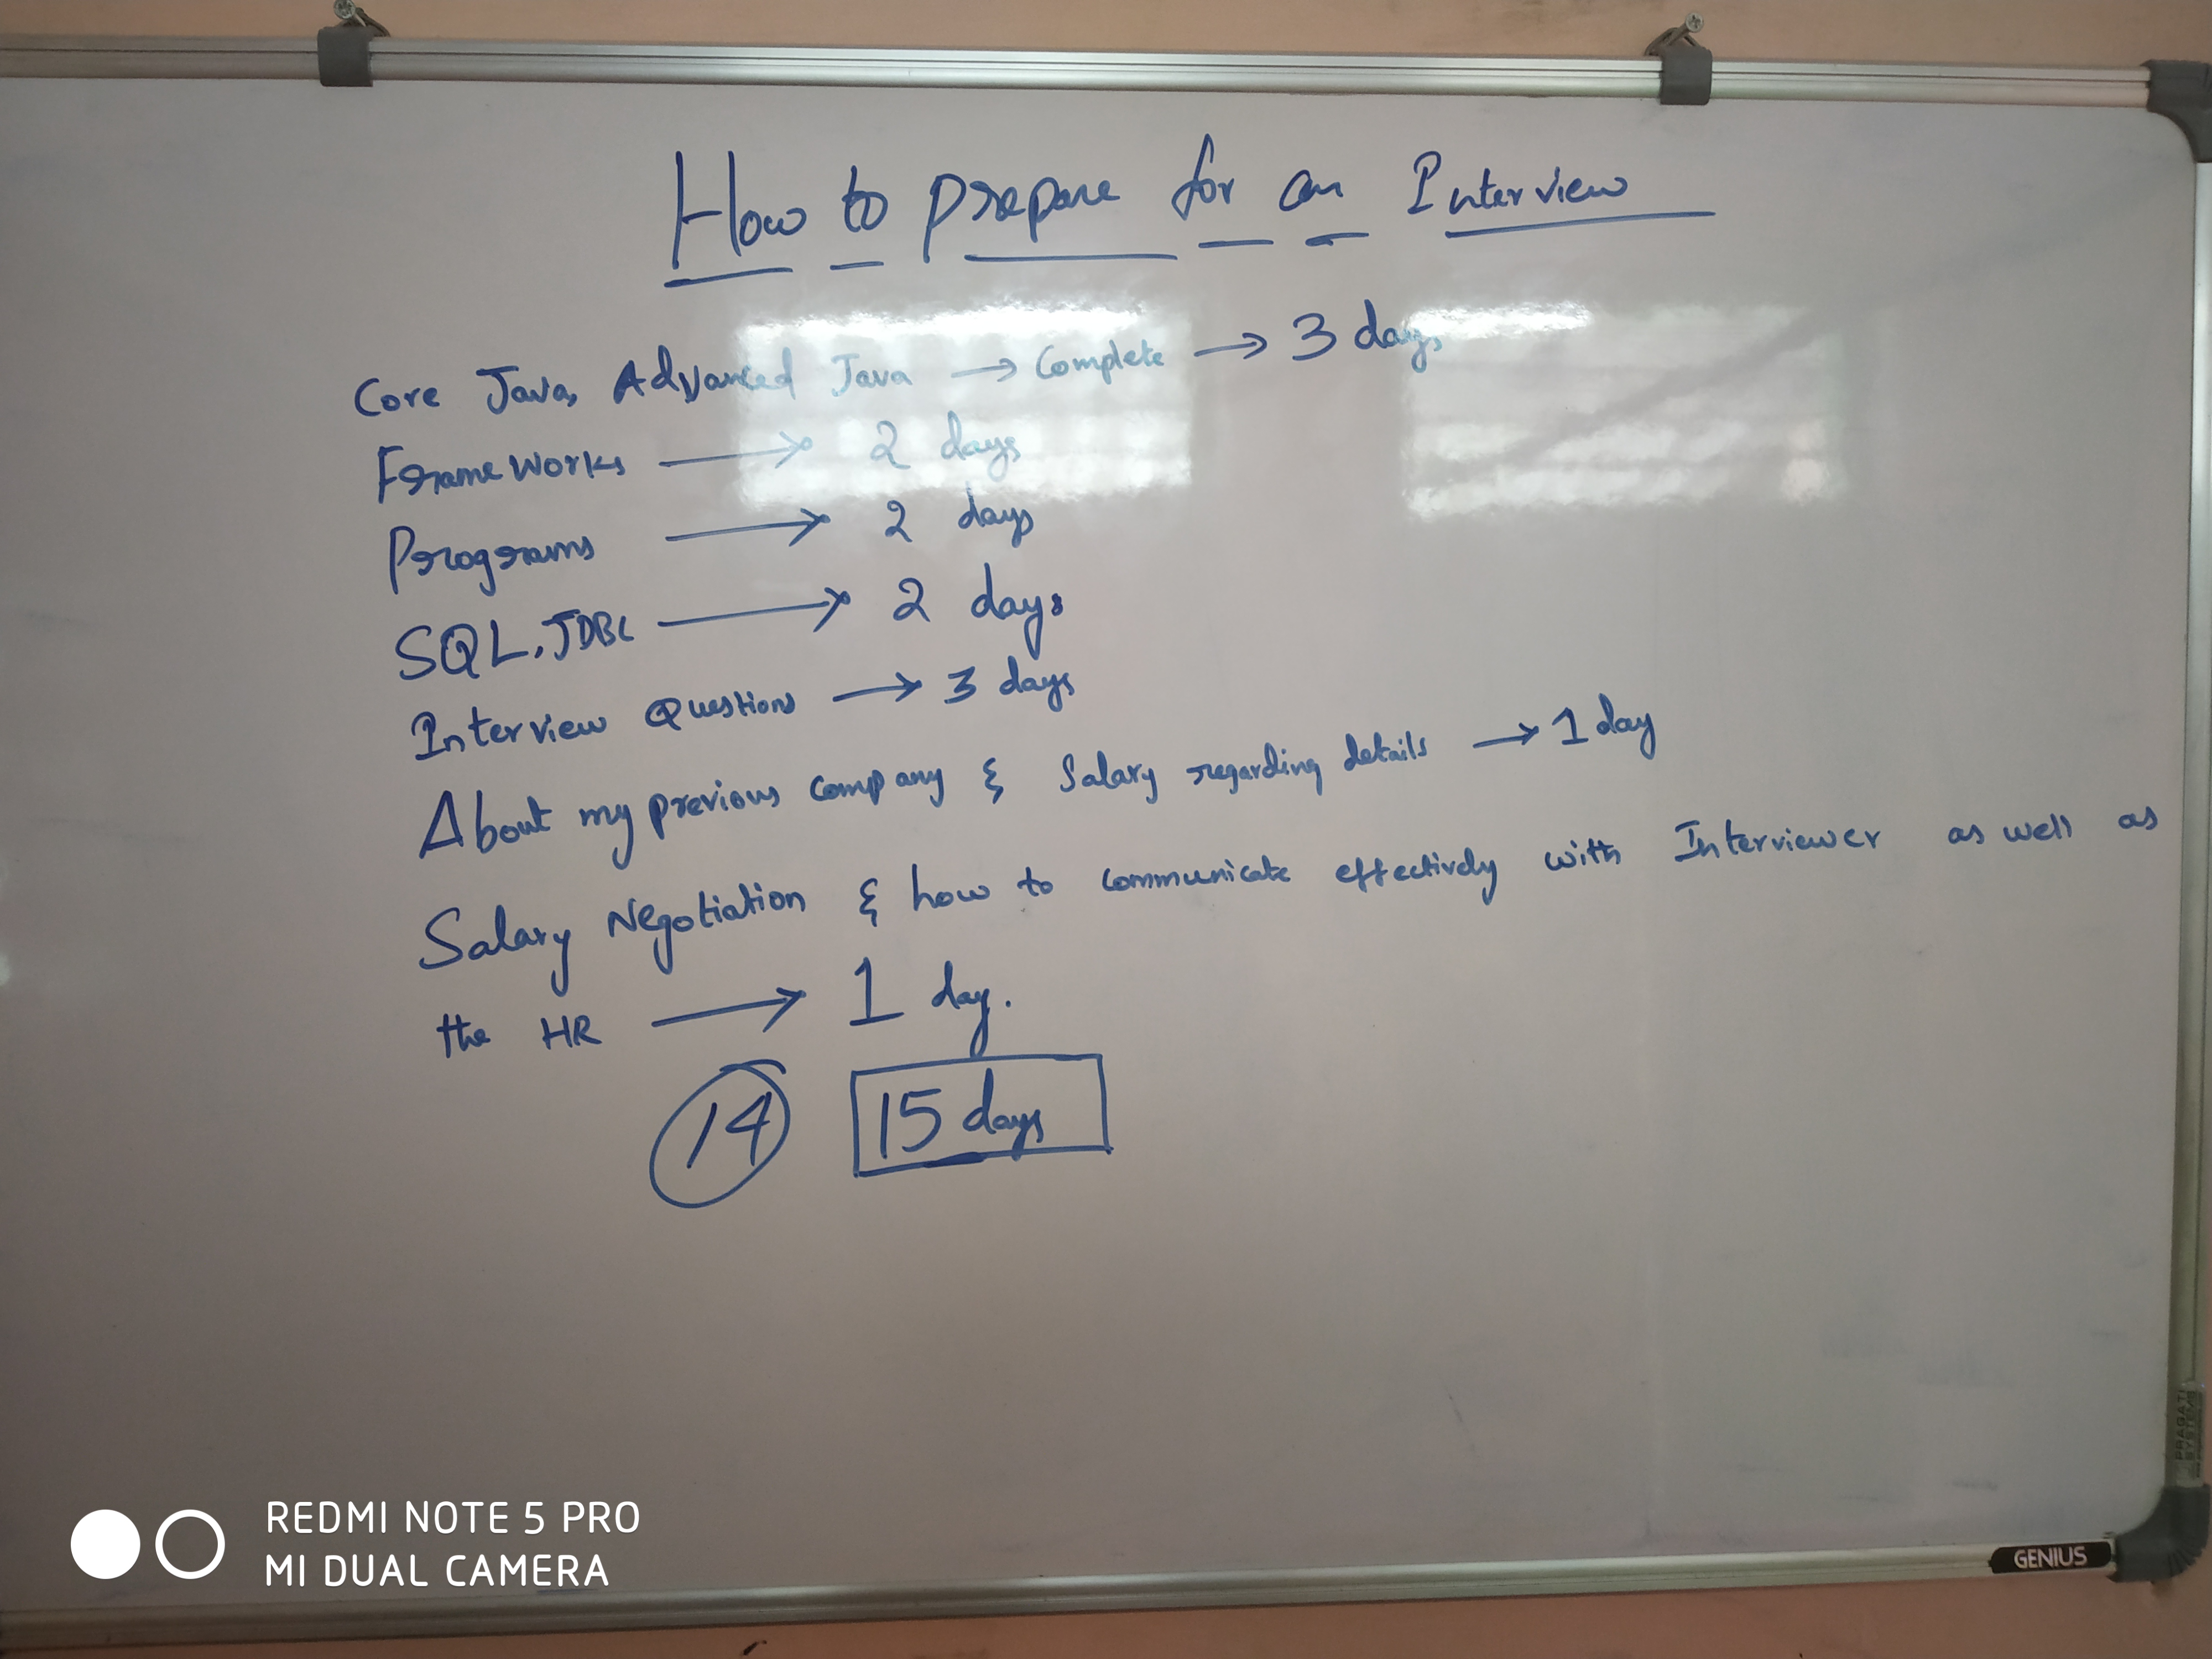 How to prepare for an Interview
Core Java, Advanced Java → Complete → 3 days
Frameworks → 2 days
Programs → 2 days
SQL, JDBC → 2 days
Interview Questions → 3 days
About my previous company & Salary regarding details → 1 day
Salary Negotiation & how to communicate effectively with Interviewer as well as
the HR → 1 day.
14 15 days
PRAGATI
SYSTEMS
GENIUS
REDMI NOTE 5 PRO
MI DUAL CAMERA